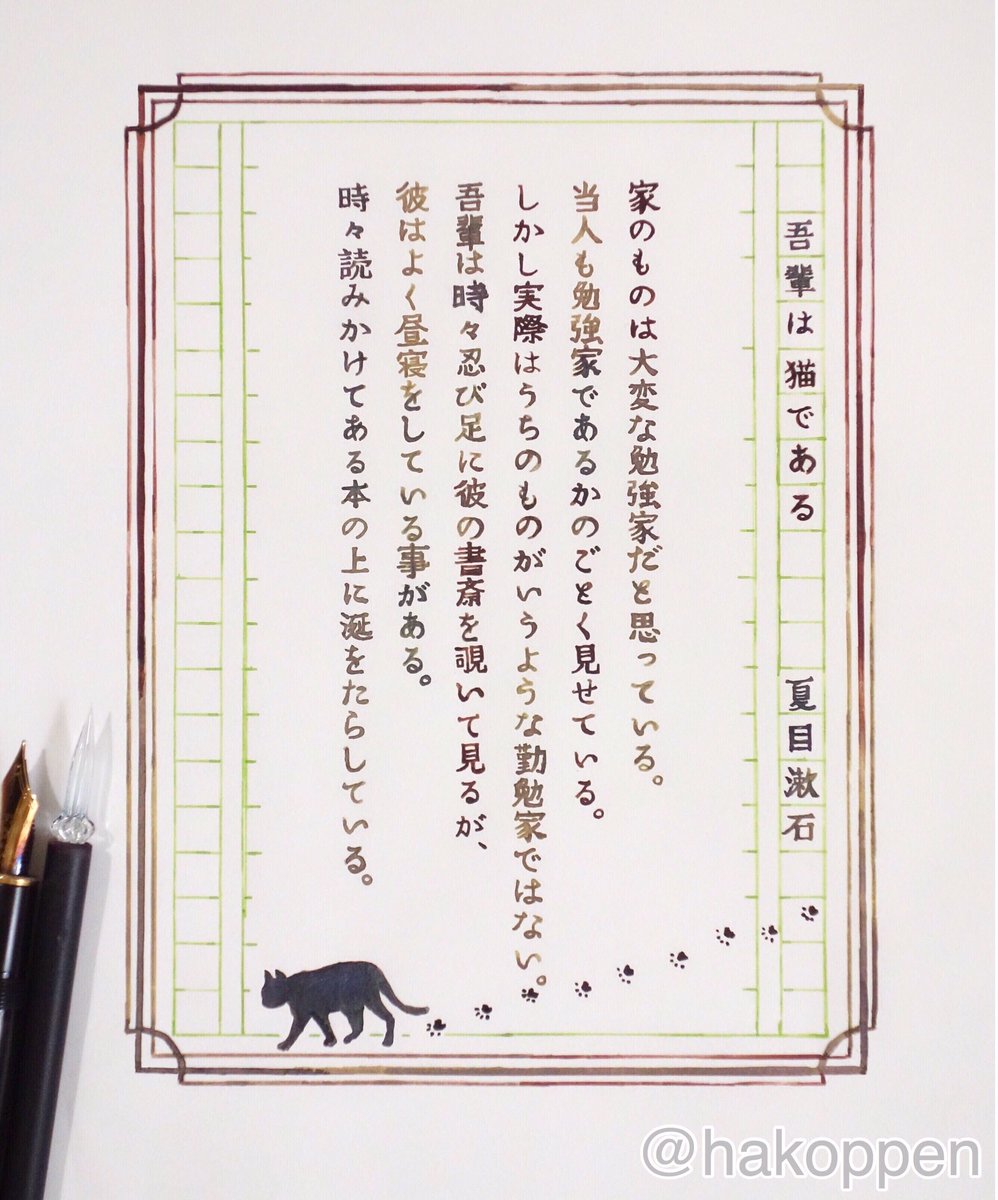 吾輩は猫である　夏目漱石
家のものは大変な勉強家だと思っている。
当人も勉強家であるかのごとく見せている。
しかし実際はうちのものがいうような勤勉家ではない。
吾輩は時々忍び足に彼の書斎を覗いて見るが、
彼はよく昼寝をしている事がある。
時々読みかけてある本の上に涎をたらしている。
@hakoppen